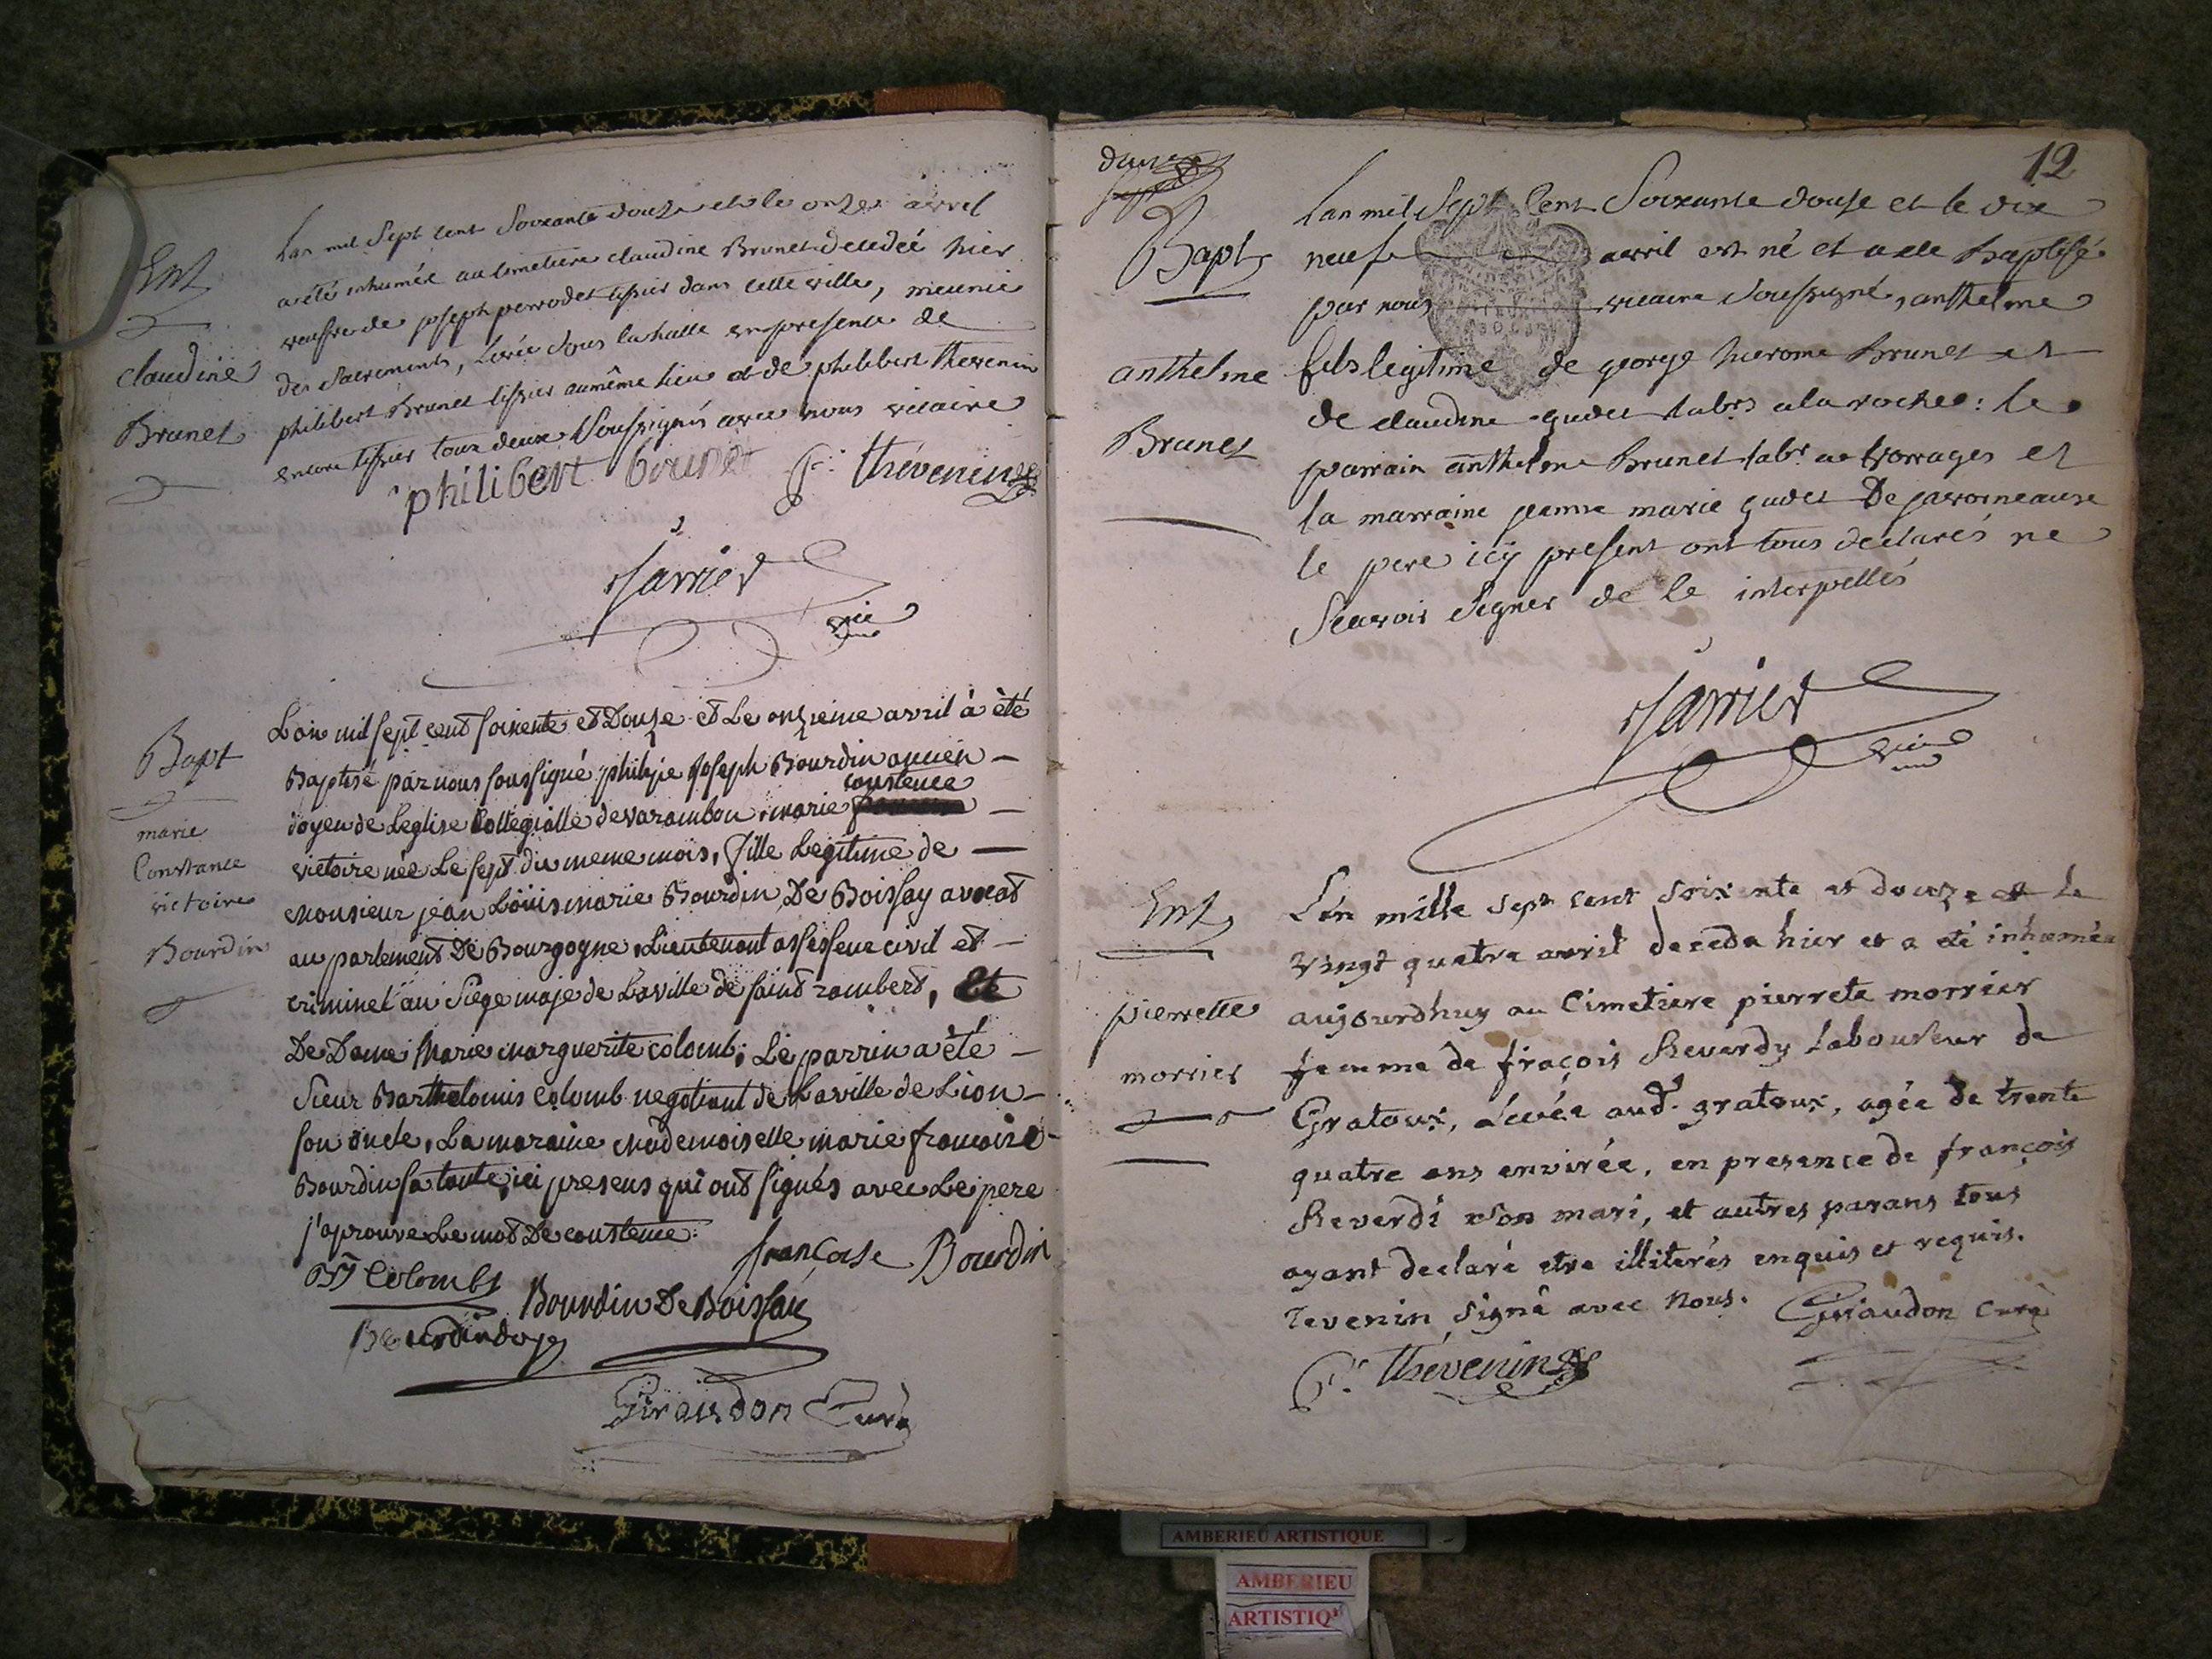 Ent
claudine
Brunet
Lan mil Sept cent Soixante douze et le onze avril
a eté inhumée au cimetiere claudine Brunet decedeé hier
veufve de joseph perrodet tissier dans cette ville, meunie
des Sacrements, Levée Sous la halle en presence de
philibert Brunet tissier au même lieu et de philibert thevenin
encore tissier tous deux Soussignés avec nous vicaire
philibert brunet Pr. thévenin
Jarrier
vic
Bapt
marie
Constance
victoire
Bourdin
L'an mil sept cent soixente et Douze et Le onzieme avril à èté
Baptisé par nous soussigné philipe Joseph Bourdin ancien
constence
doyen de Leglise Collegialle de varambon, marie
victoire née Le sept du meme mois, fille Legitime de
monsieur jean Loüis marie Bourdin De Boissay avocat
au parlement De Bourgogne, Lieutenant assesseur civil et
criminel au Siege maje de La ville de saint rambert, Et
De Dame Marie marguerite colomb; Le parrin a èté
Sieur Barthelomis colomb negotiant de La ville de Lion
son oncle, La maraine mademoiselle marie francoise
Bourdin sa tante, ici presens qui ont signés avec Le pere
j'aprouve Le mot De constence.
françoise Bourdin
Colomb
Bourdin De Boissay
Bourdin doy
Giraudon Curé
12
Bapt
anthelme
Brunet
Lan mil Sept Cent Soixante douse et le dix
neufe avril est né et a ete Baptisé
par nous vicaire Soussigné, anthelme
fils legitime de george hierome Brunet et
de claudine gudet labrs a la roche: le
parrain anthelme Brunet labr. a vorrages et
la marraine jeanne marie gudet De javorneaux
le pere icÿ present ont tous declarés ne
Scavoir Signer de le interpellés
Jarrier
vic
Ent
pierrette
morrier
L'an mille sept cent soixente et douze et le
vingt quatre avril deceda hier et a eté inhumée
aujourdhuy au Cimetiere pierrete morrier
femme de fraçois Reverdy laboureur de
Gratoux, Levée aud. gratoux, agée de trente
quatre ans envirée, en presence de françois
Reverdi son mari, et autres parans tous
ayant declaré etre illiterés enquis et requis.
Tevenin signé avec Nous. Giraudon curé
Pr. thévenin
AMBERIEU ARTISTIQUE
AMBERIEU
ARTISTIQ